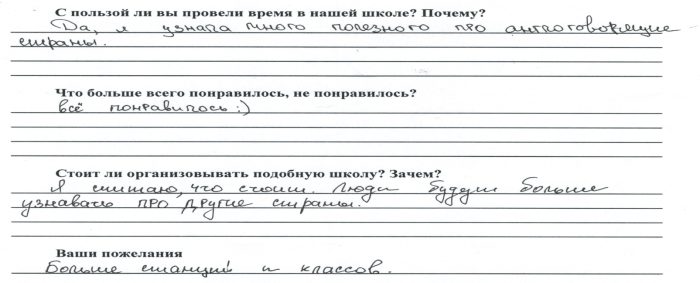 С пользой ли вы провели время в нашей школе? Почему?
Да, я узнала много полезного про англоговорящие
страны.
Что больше всего понравилось, не понравилось?
всё понравилось :)
Стоит ли организовывать подобную школу? Зачем?
Я считаю, что стоит. Люди будут больше
узнавать про другие страны.
Ваши пожелания
Больше станций и классов.